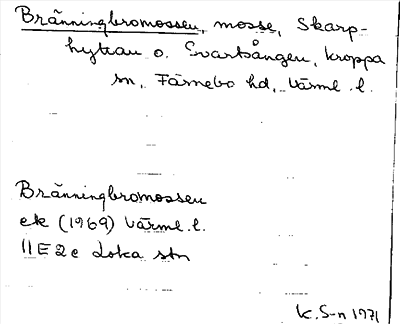 Bränningbromossen, mosse, Skarp-
hyttan o. Svartsången, Kroppa
sn, Färnebo hd, Värml. l.
Bränningbromossen
ek (1969) Värml. l.
11E 2e Loka stn
K. S-n 1971